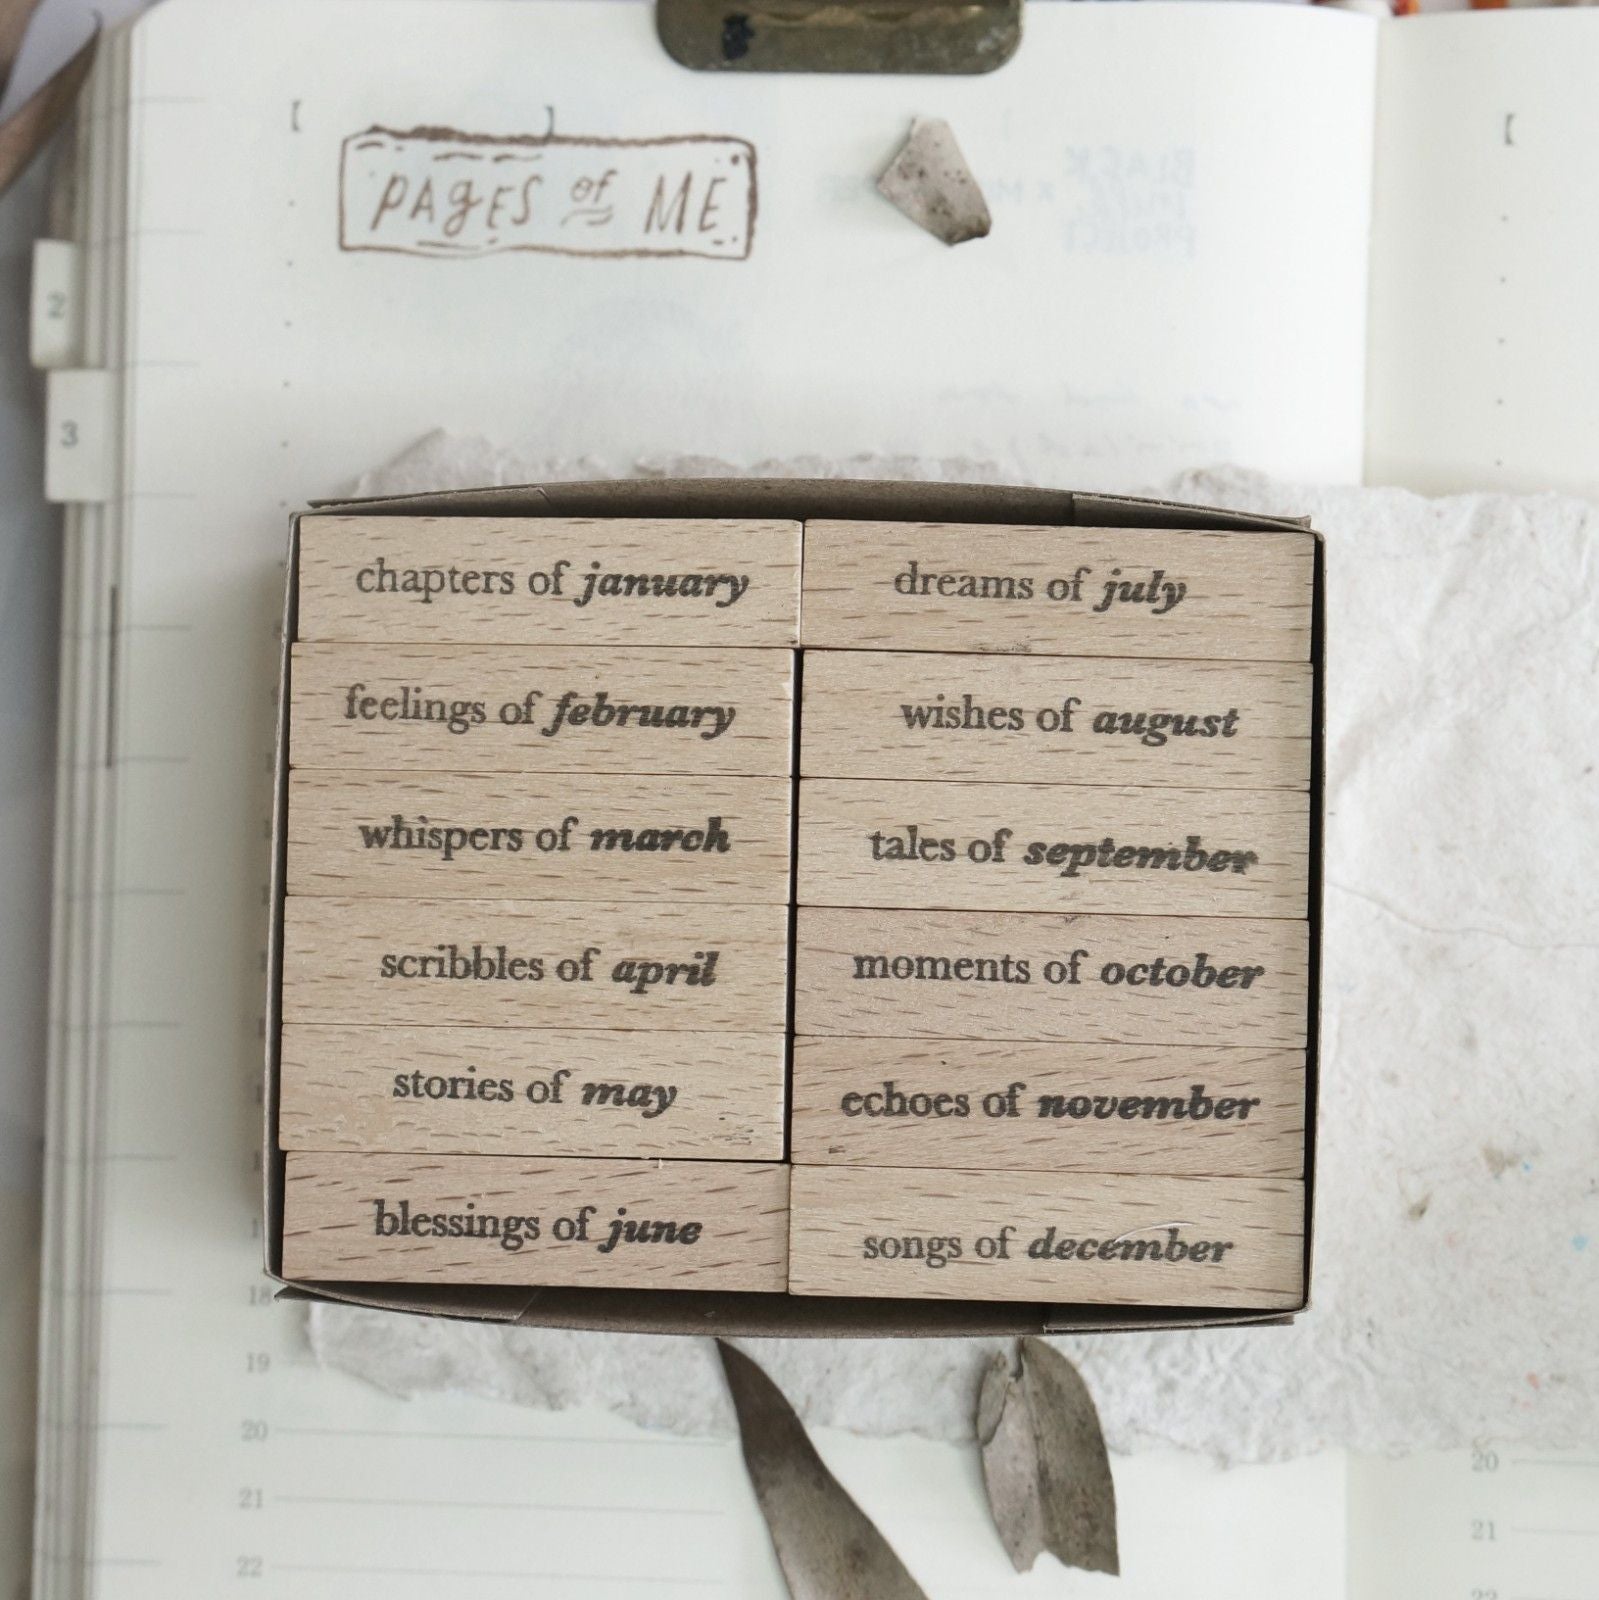 PAGES of ME
2
3
chapters of january
feelings of february
whispers of march
scribbles of april
stories of may
blessings of june
dreams of july
wishes of august
tales of september
moments of october
echoes of november
songs of december
18
19
20
21
22
20
21